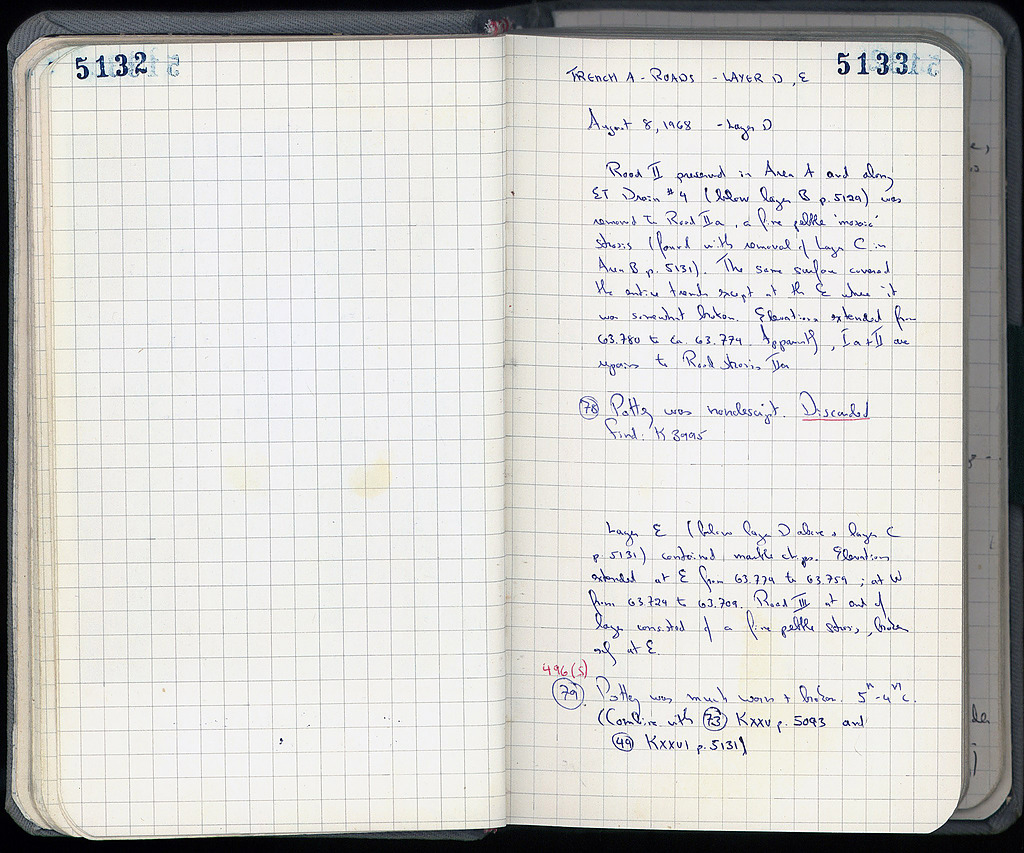 5132
5133
TRENCH A - ROADS - LAYER D, E
August 8, 1968 - Layer D
Road II preserved in Area A and along
ET Drain #4 (below layer B p. 5129) was
removed to Road IIa, a fine pebble 'mosaic'
strosis (found with removal of Layer C in
Area B p. 5131). The same surface covered
the entire trench except at the E where it
was somewhat broken. Elevations extended from
63.780 to ca. 63.774. Apparently, Ia + II are
repairs to Road strosis IIa
78 Pottery was nondescript. Discarded
Find: K 3995
Layer E (below layer D above & layer C
p. 5131) contained marble chips. Elevations
extended at E from 63.774 to 63.759; at W
from 63.724 to 63.709. Road III at end of
layer consisted of a fine pebble strosis, broken
only at E.
496(S)
79. Pottery was much worn + broken. 5th-4th c.
(Combine with 73 KXXV p. 5093 and
49 KXXVI p. 5131)